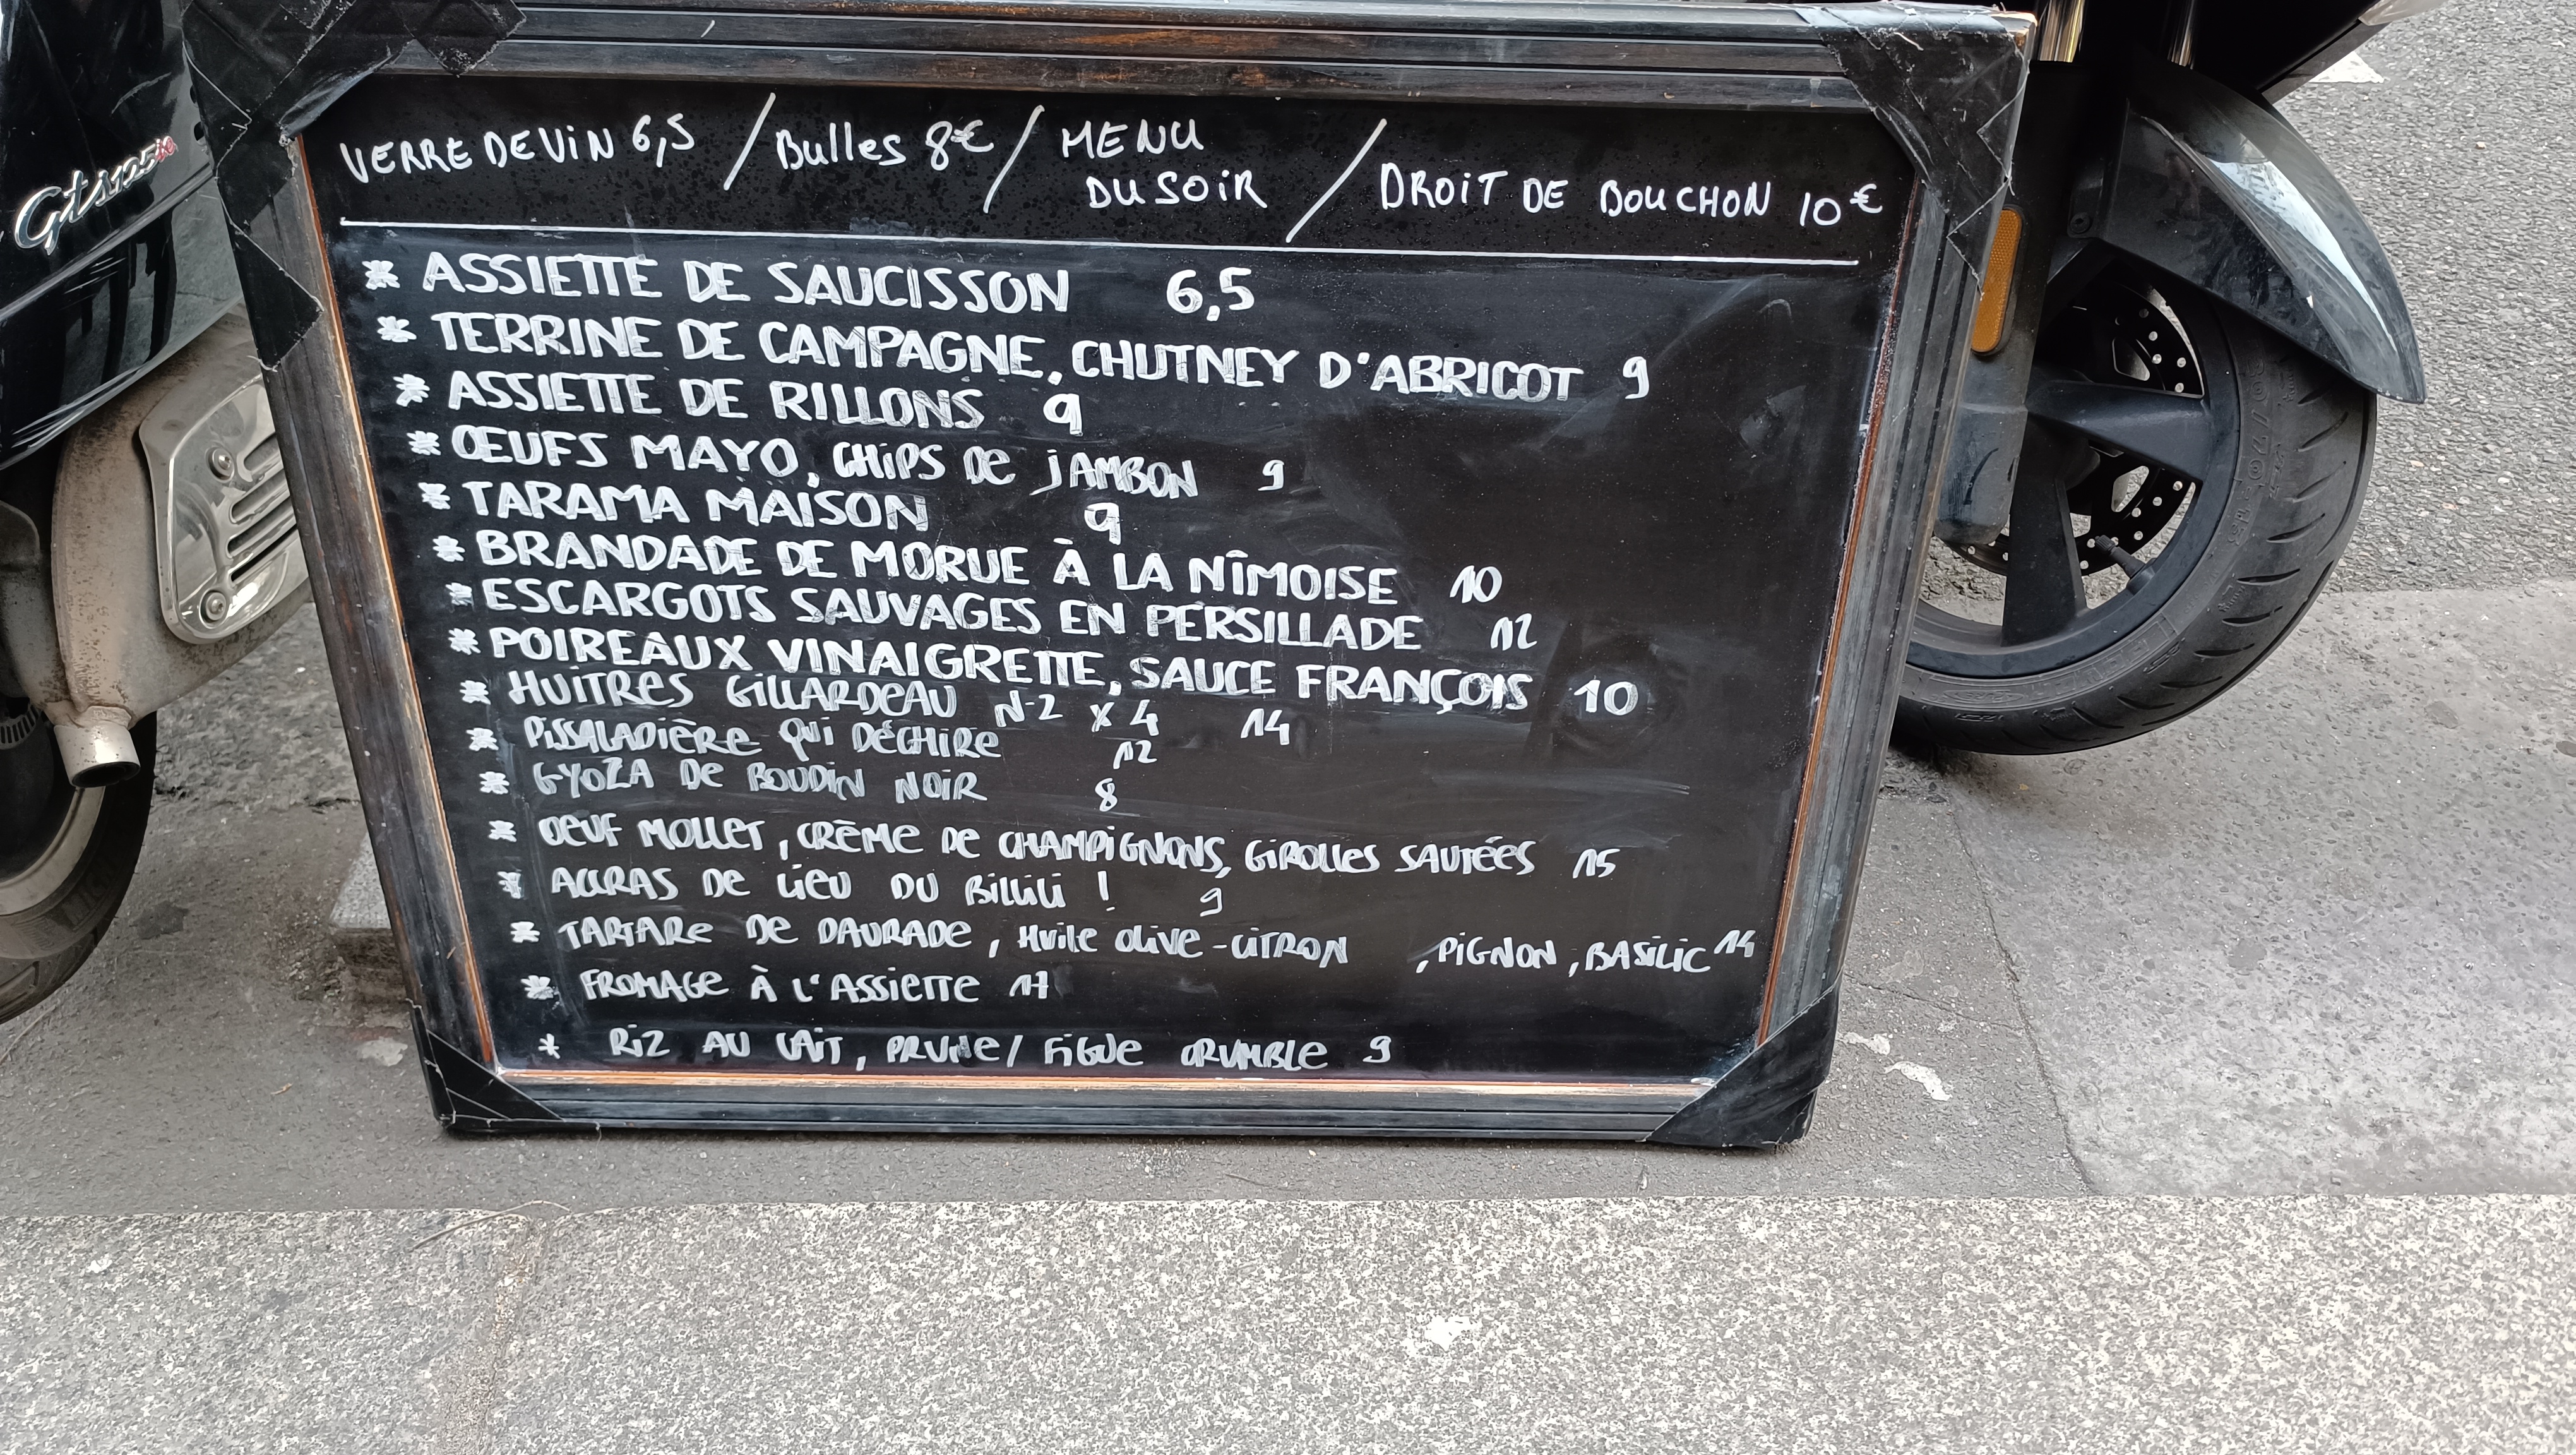 VERRE DE VIN 6,5 / Bulles 8€ / MENU DU SOIR / DROIT DE BOUCHON 10€
* ASSIETTE DE SAUCISSON 6,5
* TERRINE DE CAMPAGNE, CHUTNEY D'ABRICOT 9
* ASSIETTE DE RILLONS 9
* ŒUFS MAYO, CHIPS DE JAMBON 9
* TARAMA MAISON 9
* BRANDADE DE MORUE À LA NÎMOISE 10
* ESCARGOTS SAUVAGES EN PERSILLADE 12
* POIREAUX VINAIGRETTE, SAUCE FRANÇOIS 10
* HUITRES GILLARDEAU N°2 x 4 14
* PISSALADIÈRE QUI DÉCHIRE 12
* GYOZA DE BOUDIN NOIR 8
* OEUF MOLLET, CRÈME DE CHAMPIGNONS, GIROLLES SAUTÉES 15
* ACCRAS DE LIEU DU BILLILI ! 9
* TARTARE DE DAURADE, HUILE OLIVE-CITRON , PIGNON, BASILIC 14
* FROMAGE À L'ASSIETTE 17
* RIZ AU LAIT, PRUNE / FIGUE CRUMBLE 9
Gts125ie